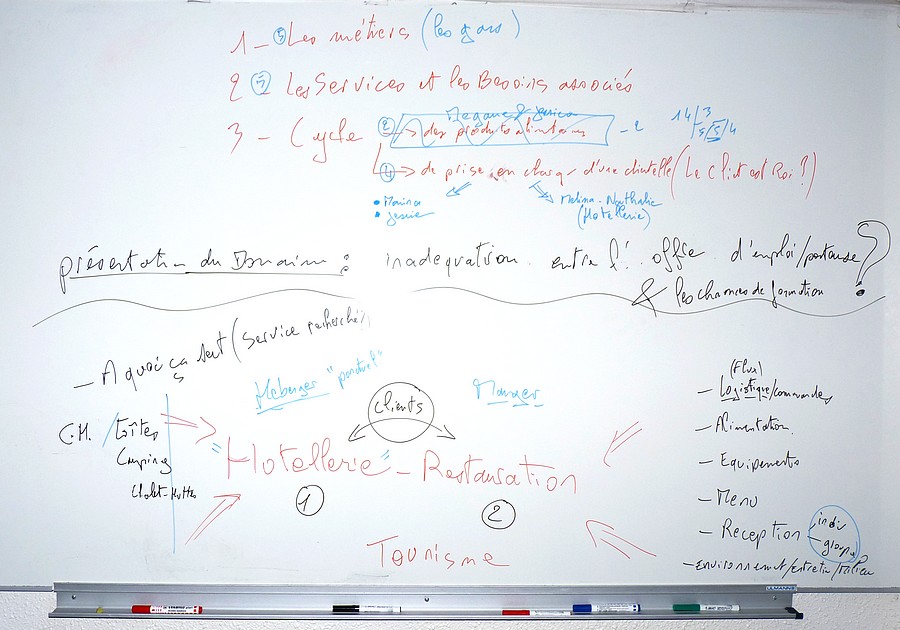 1 - 3 Les métiers (les gars)
2 5 Les Services et les Besoins associés
Megane & Jessica
3 - Cycle 2 → des produits alimentaires - 2
14/3
4 → de prise en charge d'une clientelle (Le Client est Roi ?)
• Marina
• Jessie
Melina - Nathalie
(Hotellerie)
présentation du Domaine : inadequation entre l'offre d'emploi/porteuse ?
& les charmes de formation
- A quoi ça sert (Service recherché)
Héberger "ponctuel"
clients
Manger
C.H. / Gîtes
Camping
Chalet-Huttes
"Hotellerie" - Restauration
1
2
Tourisme
(Flux)
- Logistique/commandes
- Alimentation
- Equipements
- Menu
- Reception
indiv
groupe
- environnement/entretien/Milieu